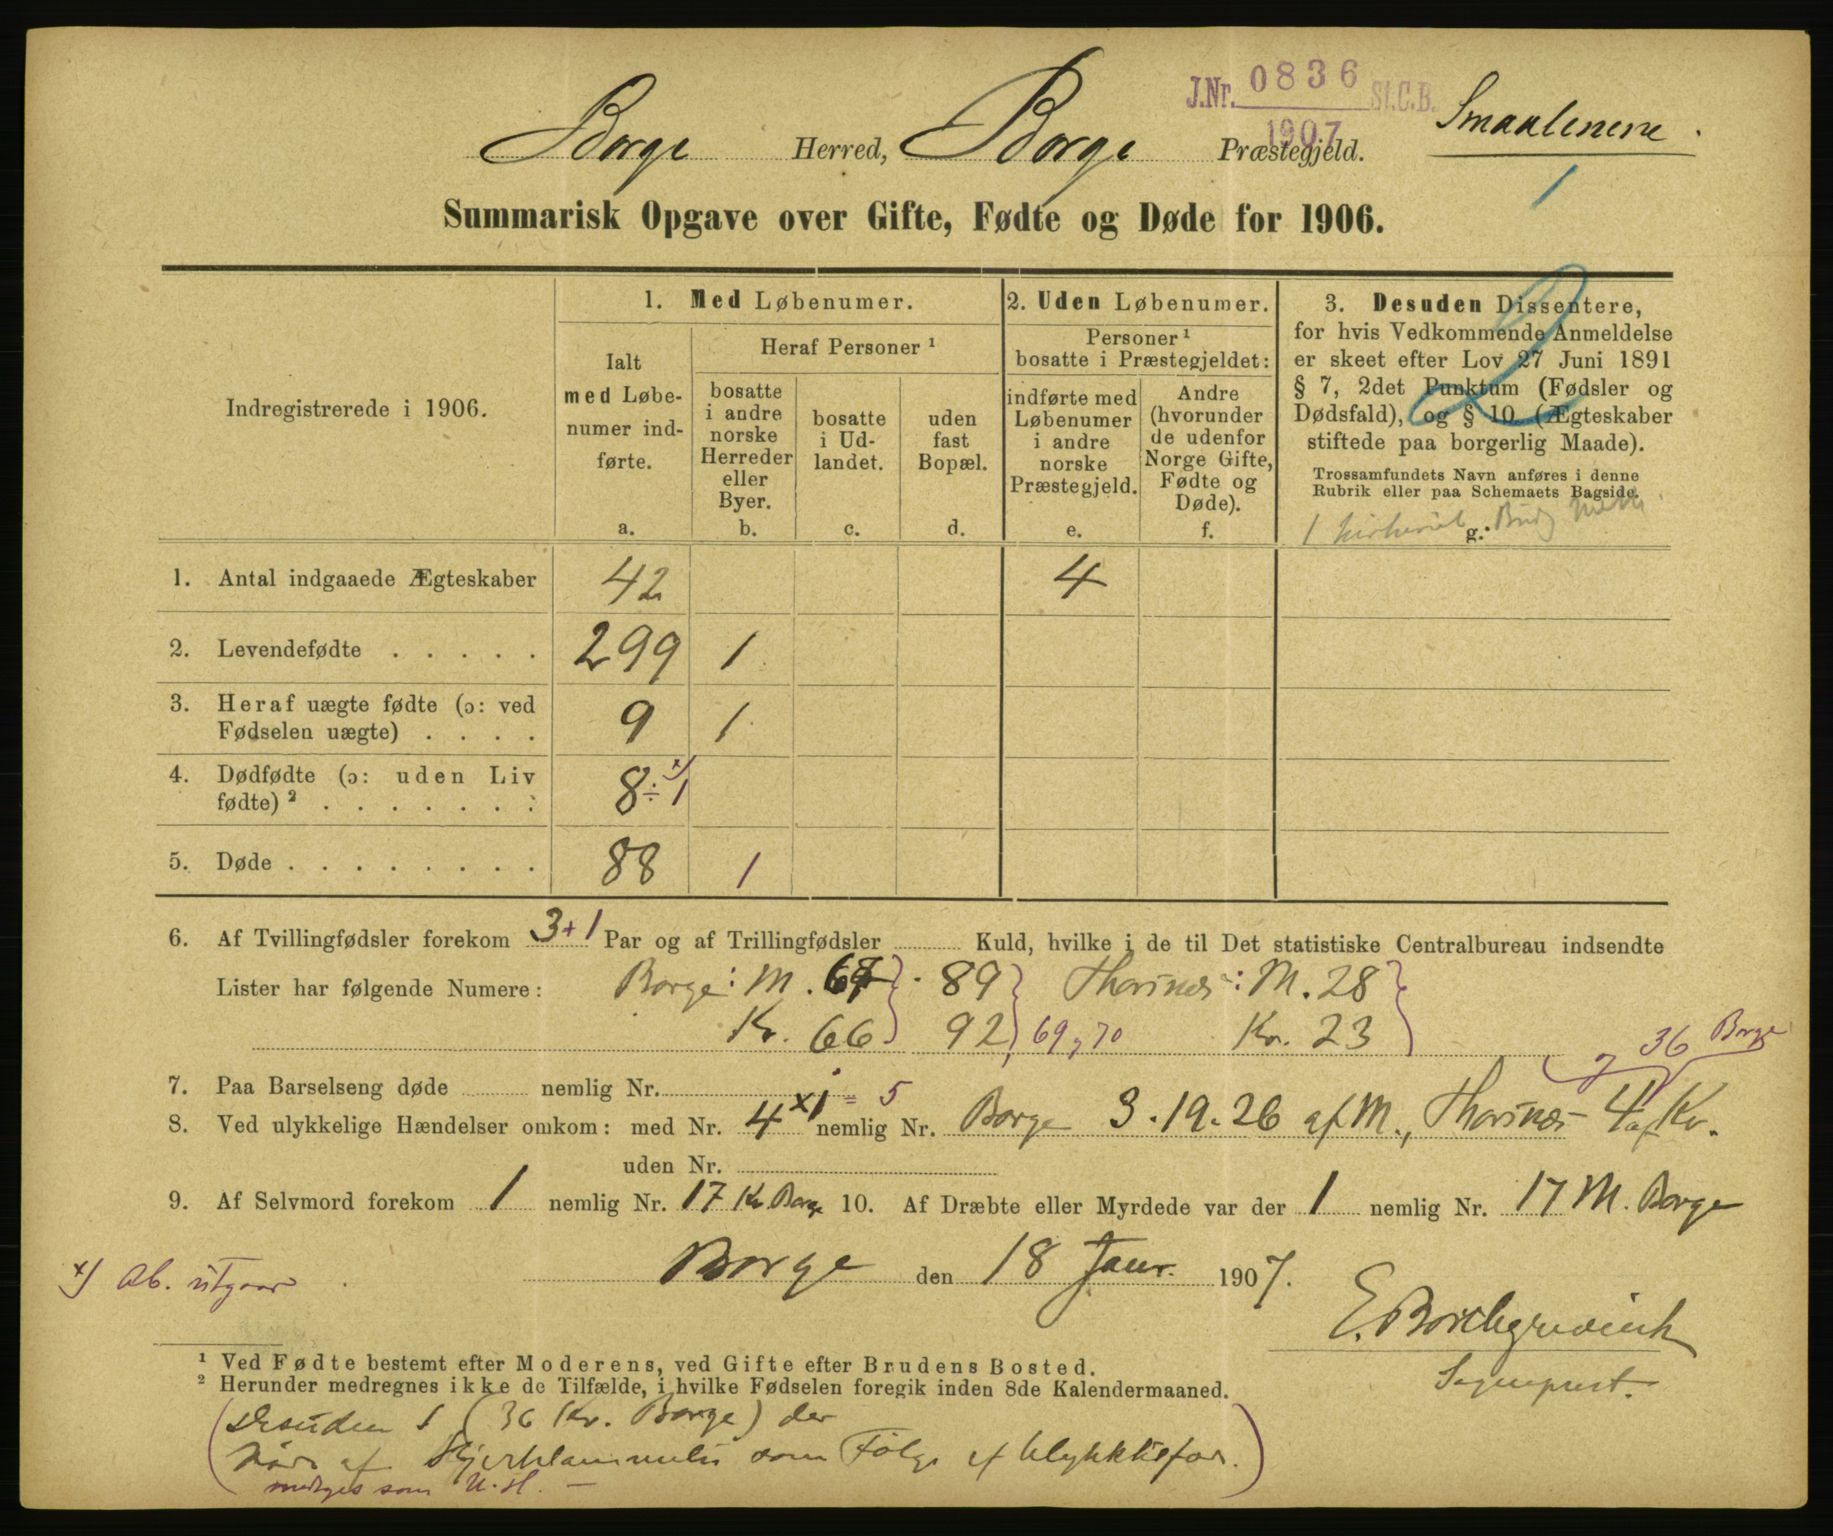 J.Nr. 0836 St.C.B.
1907
Smaalenene
Borge Herred, Borge Præstegjeld.
1
Summarisk Opgave over Gifte, Fødte og Døde for 1906.
Indregistrerede i 1906.
1. Med Løbenumer.
Ialt
med Løbe-
numer ind-
førte.
a.
Heraf Personer ¹
bosatte
i andre
norske
Herreder
eller
Byer.
b.
bosatte
i Ud-
landet.
c.
uden
fast
Bopæl.
d.
2. Uden Løbenumer.
Personer ¹
bosatte i Præstegjeldet:
indførte med
Løbenumer
i andre
norske
Præstegjeld.
e.
Andre
(hvorunder
de udenfor
Norge Gifte,
Fødte og
Døde).
f.
3. Desuden Dissentere,
for hvis Vedkommende Anmeldelse
er skeet efter Lov 27 Juni 1891
§ 7, 2det Punktum (Fødsler og
Dødsfald), og § 10 (Ægteskaber
stiftede paa borgerlig Maade).
Trossamfundets Navn anføres i denne
Rubrik eller paa Schemaets Bagside.
g.
2
1. Antal indgaaede Ægteskaber 42 4
2. Levendefødte . . . . . 299 1
3. Heraf uægte fødte (ɔ: ved
Fødselen uægte) . . . . 9 1
4. Dødfødte (ɔ: uden Liv
fødte) ² . . . . . . . 8 ÷ 1 x)
5. Døde . . . . . . . . 88 1
6. Af Tvillingfødsler forekom 3+1 Par og af Trillingfødsler Kuld, hvilke i de til Det statistiske Centralbureau indsendte
Lister har følgende Numere: Borge: M. 67 . 89 Thorsnes: M. 28
Kv. 66 92, 69, 70 Kv. 23
36 Borge
7. Paa Barselseng døde nemlig Nr.
8. Ved ulykkelige Hændelser omkom: med Nr. 4 x1 = 5 nemlig Nr. Borge 3 . 19 . 26 af M., Thorsnes 4 af Kv.
uden Nr.
9. Af Selvmord forekom 1 nemlig Nr. 17 Kv Borge 10. Af Dræbte eller Myrdede var der 1 nemlig Nr. 17 M. Borge
x) Ab. utgaar
Borge den 18 Janr. 1907.
E. Borchgrevink
Sogneprest.
¹ Ved Fødte bestemt efter Moderens, ved Gifte efter Brudens Bosted.
² Herunder medregnes ikke de Tilfælde, i hvilke Fødselen foregik inden 8de Kalendermaaned.
(Desuden 1 (36 Kv. Borge) der
døde af Hjertelammelse som Følge af Ulykkestilf.)
medtages som U.H. —